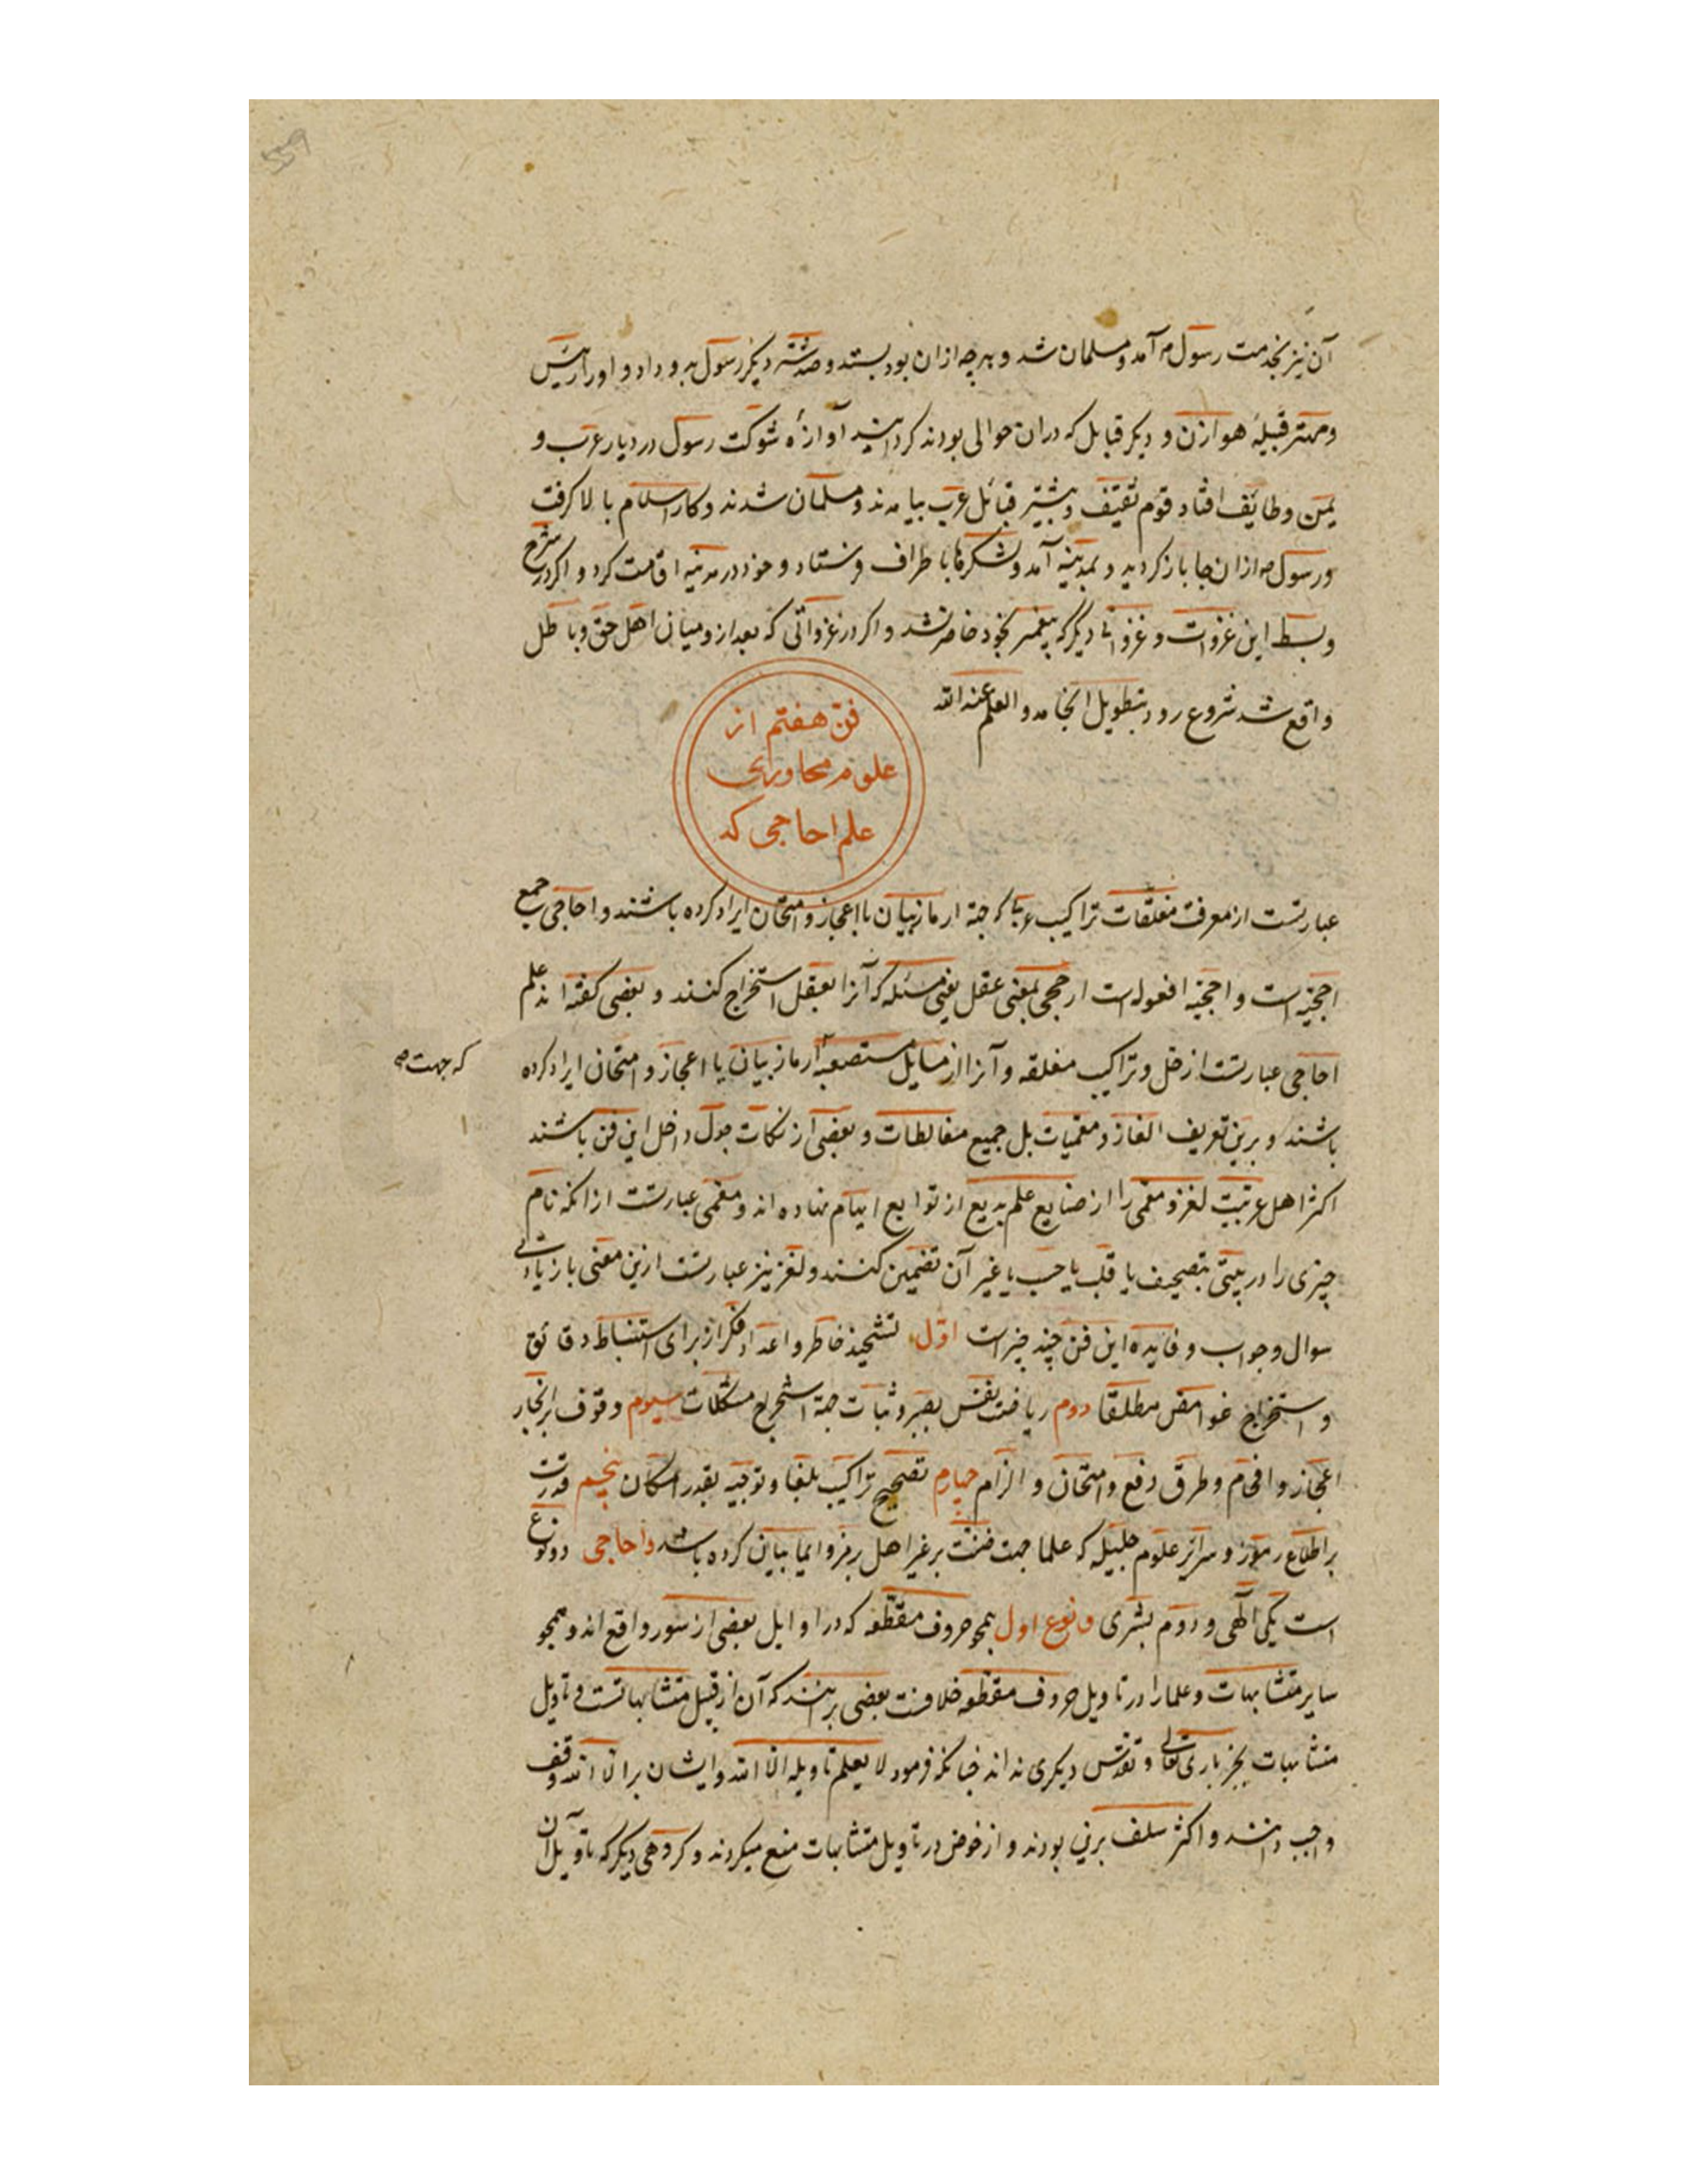 آن نیز بخدمت رسول آمد و مسلمان شد و هر چه ازان بود بستد و صد شتر دیگر رسول بدو داد و او را رئیس
و مهتر قبیلۀ هوازن و دیگر قبایل که دران حوالی بودند گردانید آوازۀ شوکت رسول در دیار عرب و
یمن و طایف افتاد قوم ثقیف و بیشتر قبائل عرب بیامدند و مسلمان شدند و کار اسلام بالا گرفت
و رسول ازان جا باز گردید و بمدینه آمد و لشکرها باطراف فرستاد و خود در مدینه اقامت کرد و اگر در شرح
و بسط این غزوات و غزواتی دیگر که پیغمبر بخود حاضر نشد و اگر در غزواتی که بعد ازو میان اهل حق و باطل
واقع شد شروع رود بتطویل انجامد و العلم عند الله
فن هفتم از
علوم محاوری
علم احاجی که
عبارتست از معرفت مغلقات تراکیب که جهة بیان یا اعجاز و امتحان ایراد کرده باشند و احاجی جمع
احجیه است و احجیه افعوله است از حجی بمعنی عقل یعنی مسئله که آنرا بعقل استخراج کنند و بعضی گفته‌اند علم
احاجی عبارتست از حل و تراکیب مغلقه و آنرا از مسایل مستصعبه بیان یا اعجاز و امتحان ایراد کرده
که جهت
باشند و برین تعریف الغاز و معمیات بل جمیع مغالطات و بعضی از نکات جدل داخل این فن باشند
اکثر اهل عربیت لغز و معمی را از صنایع علم بدیع از توابع ایهام نهاده اند و معمی عبارتست از انکه نام
چیزی را در بیتی بتصحیف یا قلب یا حسب یا غیر آن تضمین کنند و لغز نیز عبارتست ازین معنی با زیادتی
سوال و جواب و فایده این فن چند چیز است اول تشحیذ خاطر و اعداد فکر از برای استنباط دقائق
و استخراج غوامض مطلقا دوم ریاضت نفس بصبر و ثبات جهة استخراج مشکلات سیوم وقوف بر انحاء
اعجاز و افحام و طرق دفع و امتحان و الزام چهارم تصحیح تراکیب بلغا و توجیه بقدر امکان پنجم قدرت
بر اطلاع رموز و سرائر علوم جلیله که علما جهت ضنت بر غیر اهل برمز و ایما بیان کرده باشند و احاجی دو نوع
است یکی الهی و دوم بشری و نوع اول همچو حروف مقطعه که در اوایل بعضی از سور واقع اند و همچو
سایر متشابهات و علما را در تاویل حروف مقطعه خلافست بعضی برانند که آن از قبیل متشابهاتست و تاویل
متشابهات بجز باری تعالی و تقدس دیگری نداند چنانکه فرمود لا یعلم تاویله الا الله و ایشان بر الا الله وقف
واجب دانند و اکثر سلف برین بودند و از خوض در تاویل متشابهات منع میکردند و گروهی دیگر که تاویل آن